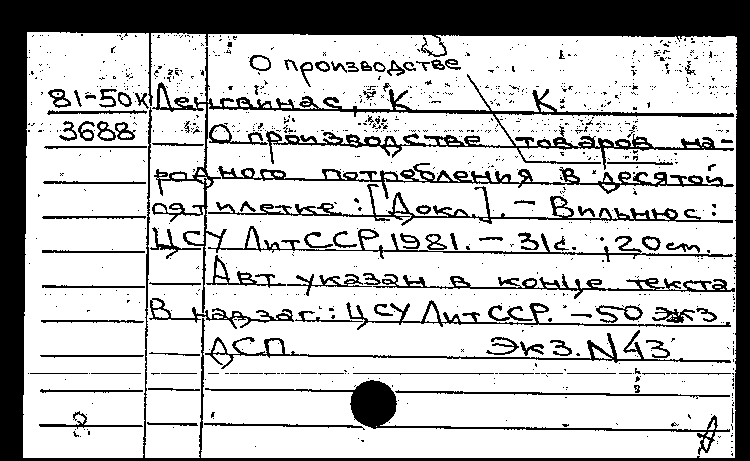 О производстве
81-50к Ленгвинас, К К
3688 О производстве товаров на-
родного потребления в десятой
пятилетке: [Докл.]. - Вильнюс:
ЦСУ ЛитССР, 1981. - 31с. ; 20 см.
Авт указан в конце текста
В надзаг.: ЦСУ ЛитССР. - 50 экз.
ДСП. Экз. N 43
8.